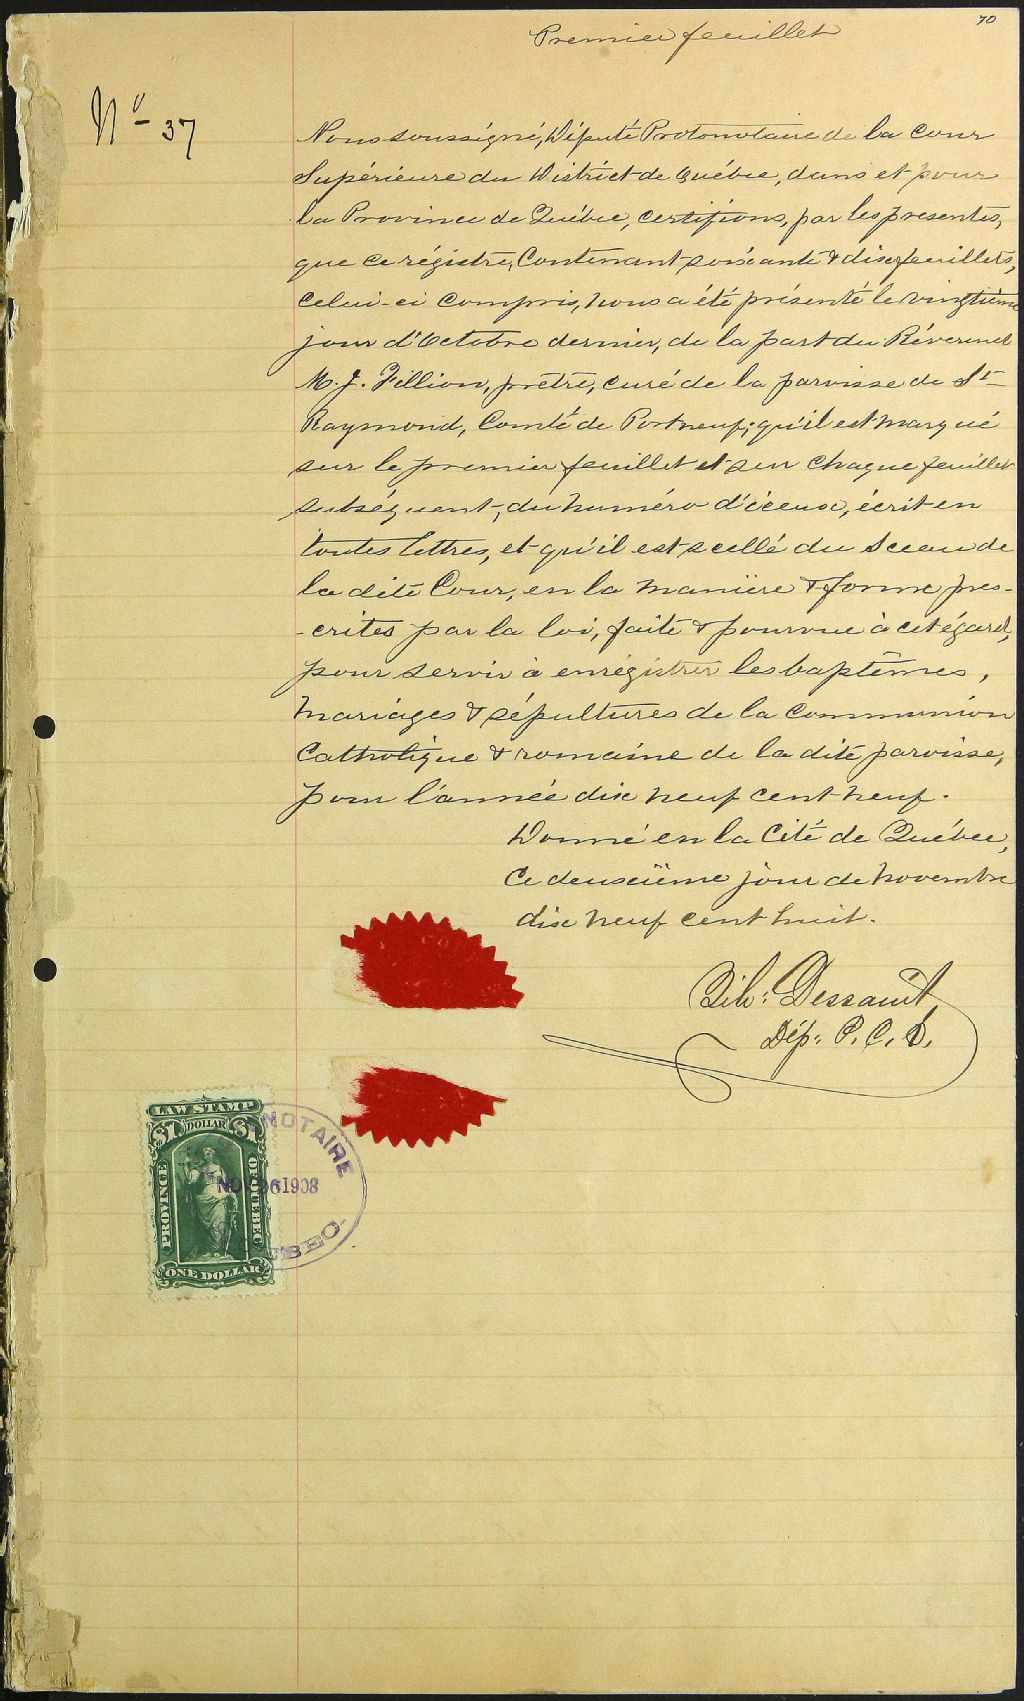 70
Premier feuillet
No 37
Nous soussigné, Député Protonotaire de la Cour
Supérieure du District de Québec, dans et pour
la Province de Québec, certifions, par les presentes,
que ce régistre, Contenant soixante & dix feuillets,
celui-ci compris, nous a été présenté le vingtième
jour d'Octobre dernier, de la part du Révérend
M. J. Fillion, prêtre, curé de la paroisse de St
Raymond, Comté de Portneuf; qu'il est marqué
sur le premier feuillet et sur chaque feuillet
subséquent, du numéro d'iceux, écrit en
toutes lettres, et qu'il est scellé du Sceau de
la dite Cour, en la manière & forme pres-
-crites par la loi, faite & pourvue à cet égard,
pour servir à enrégistrer les baptêmes,
mariages & sépultures de la communion
Catholique & romaine de la dite paroisse,
pour l'année dix neuf cent neuf.
Donné en la Cité de Québec,
ce deuxième jour de novembre
dix neuf cent huit.
Dessault
Dép: P. C. S.
LAW STAMP
$1 DOLLAR $1
PROVINCE OF QUEBEC
ONE DOLLAR
NOTAIRE
NOV 06 1908
BEC